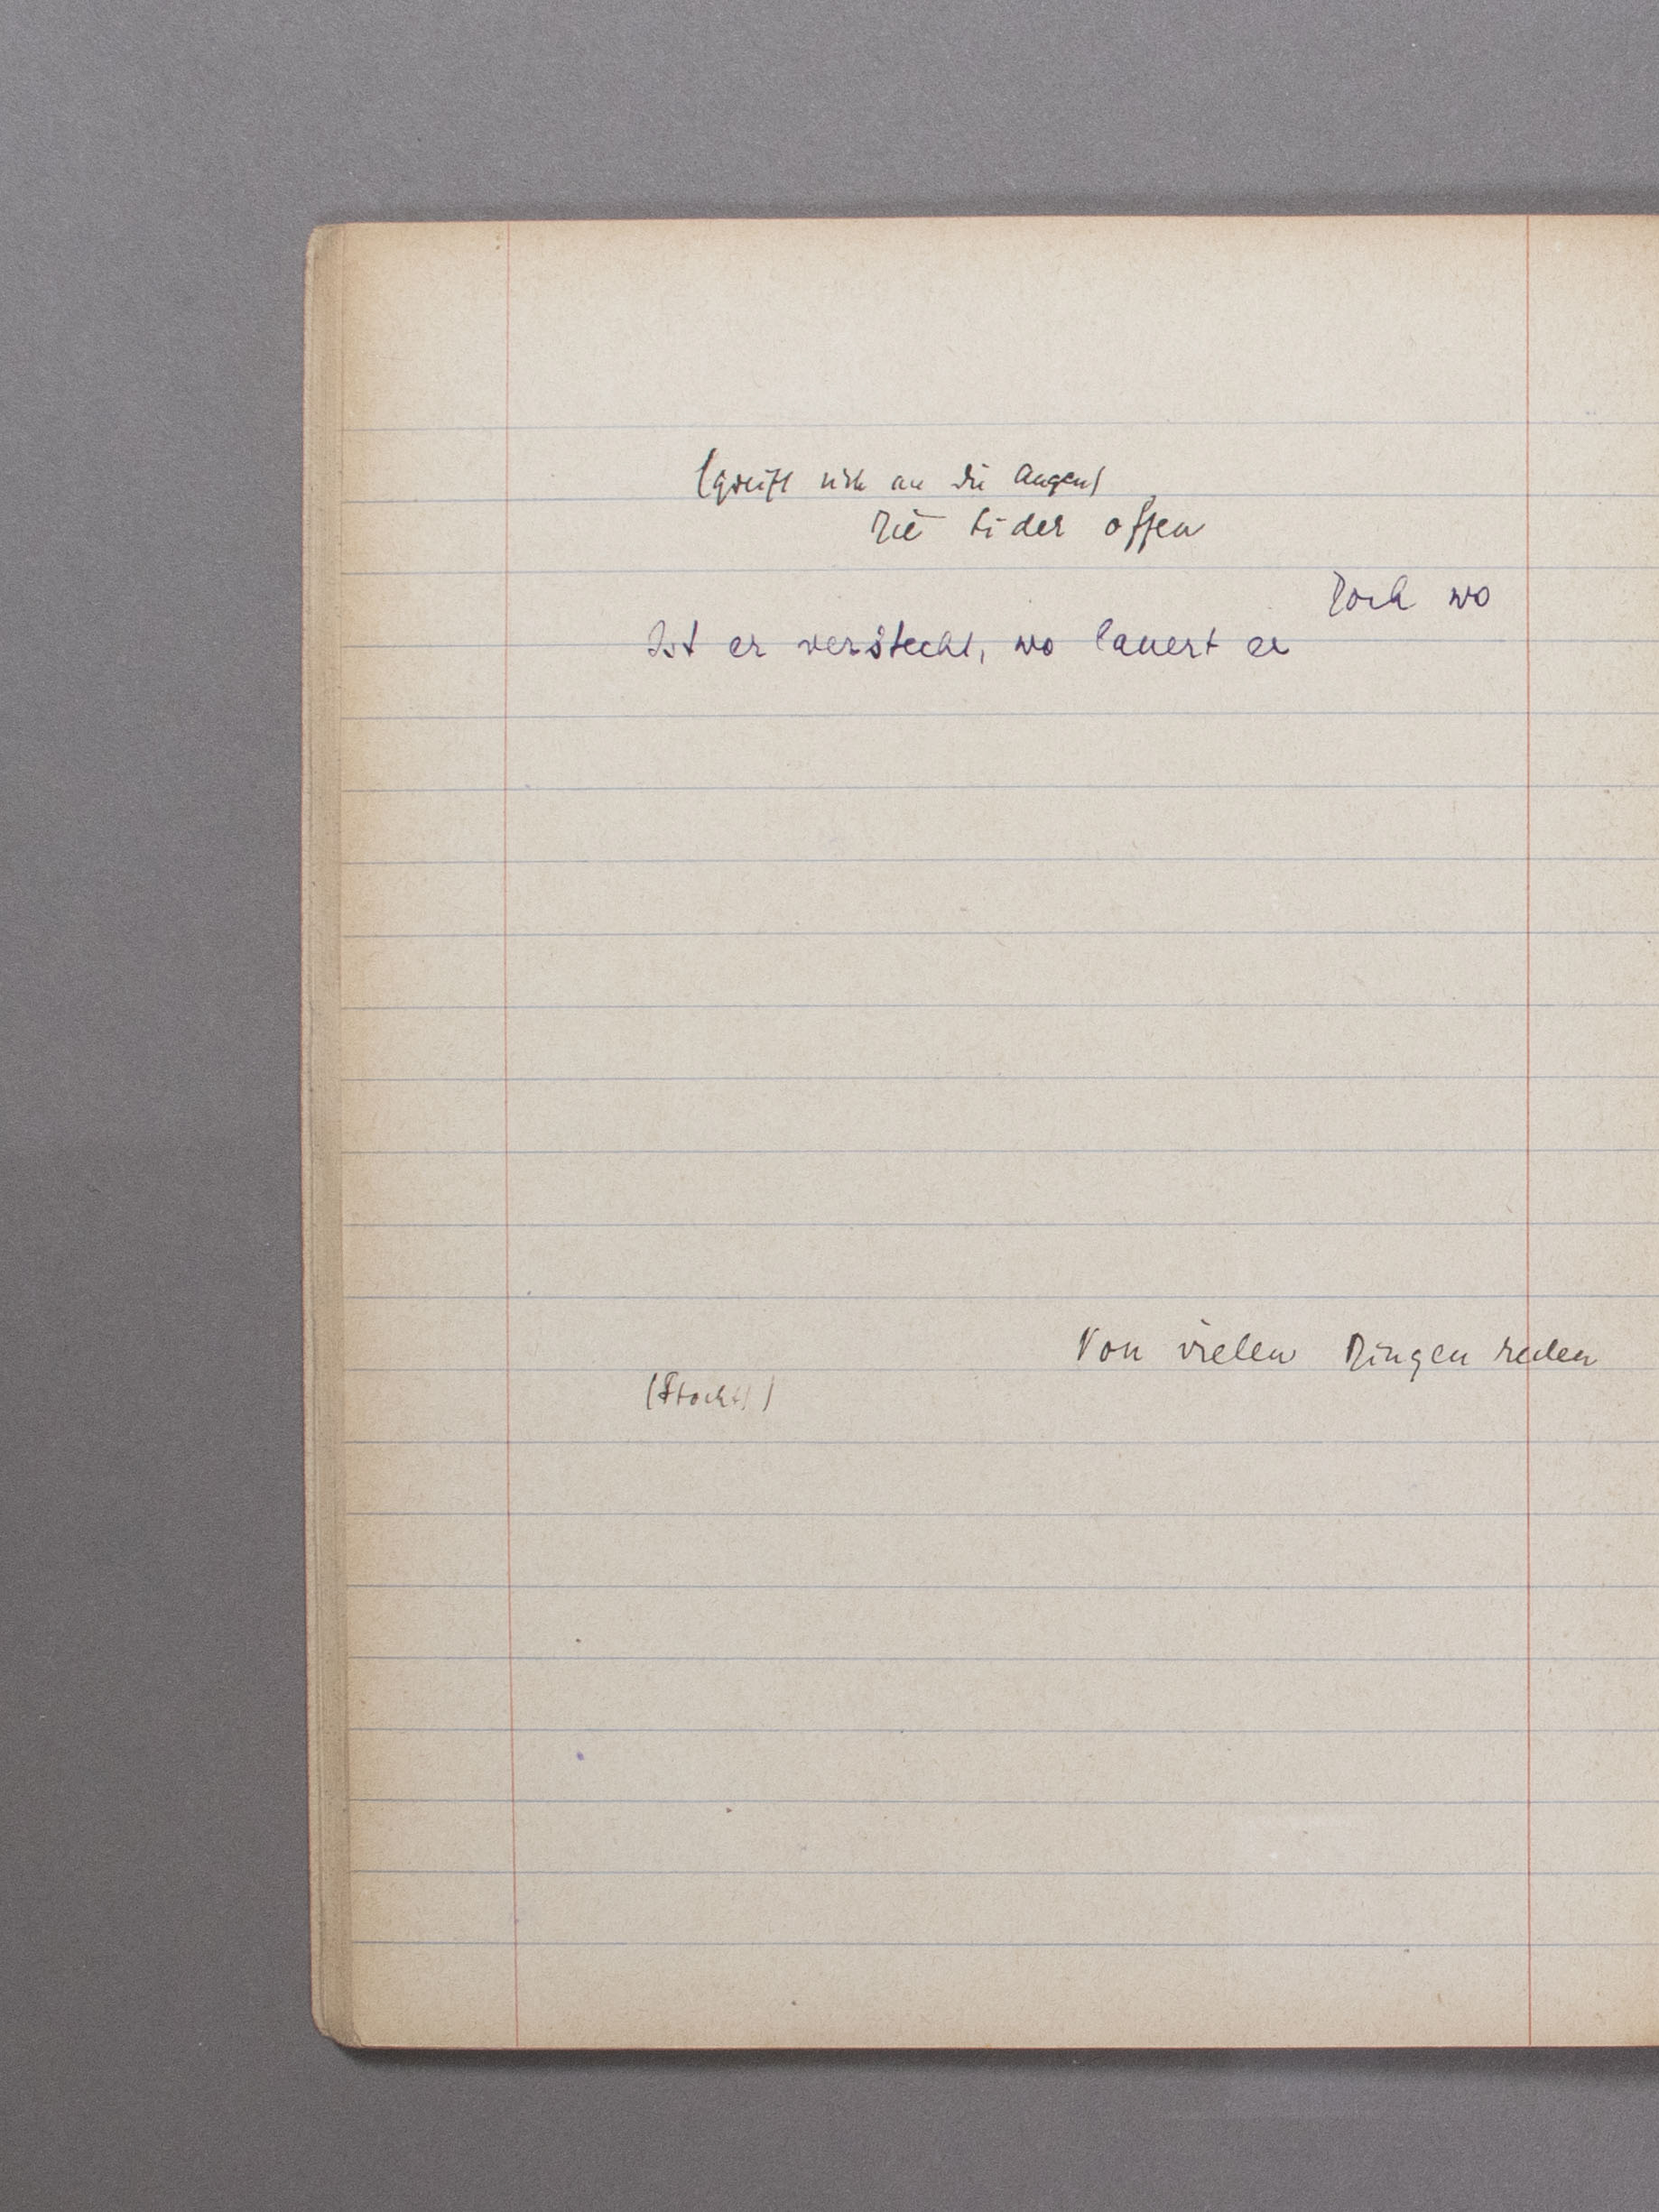 (greift sich an die Augen)
Die Lider offen
Doch wo
Ist er versteckt, wo lauert er
Von vielen Dingen reden
(Stockt)